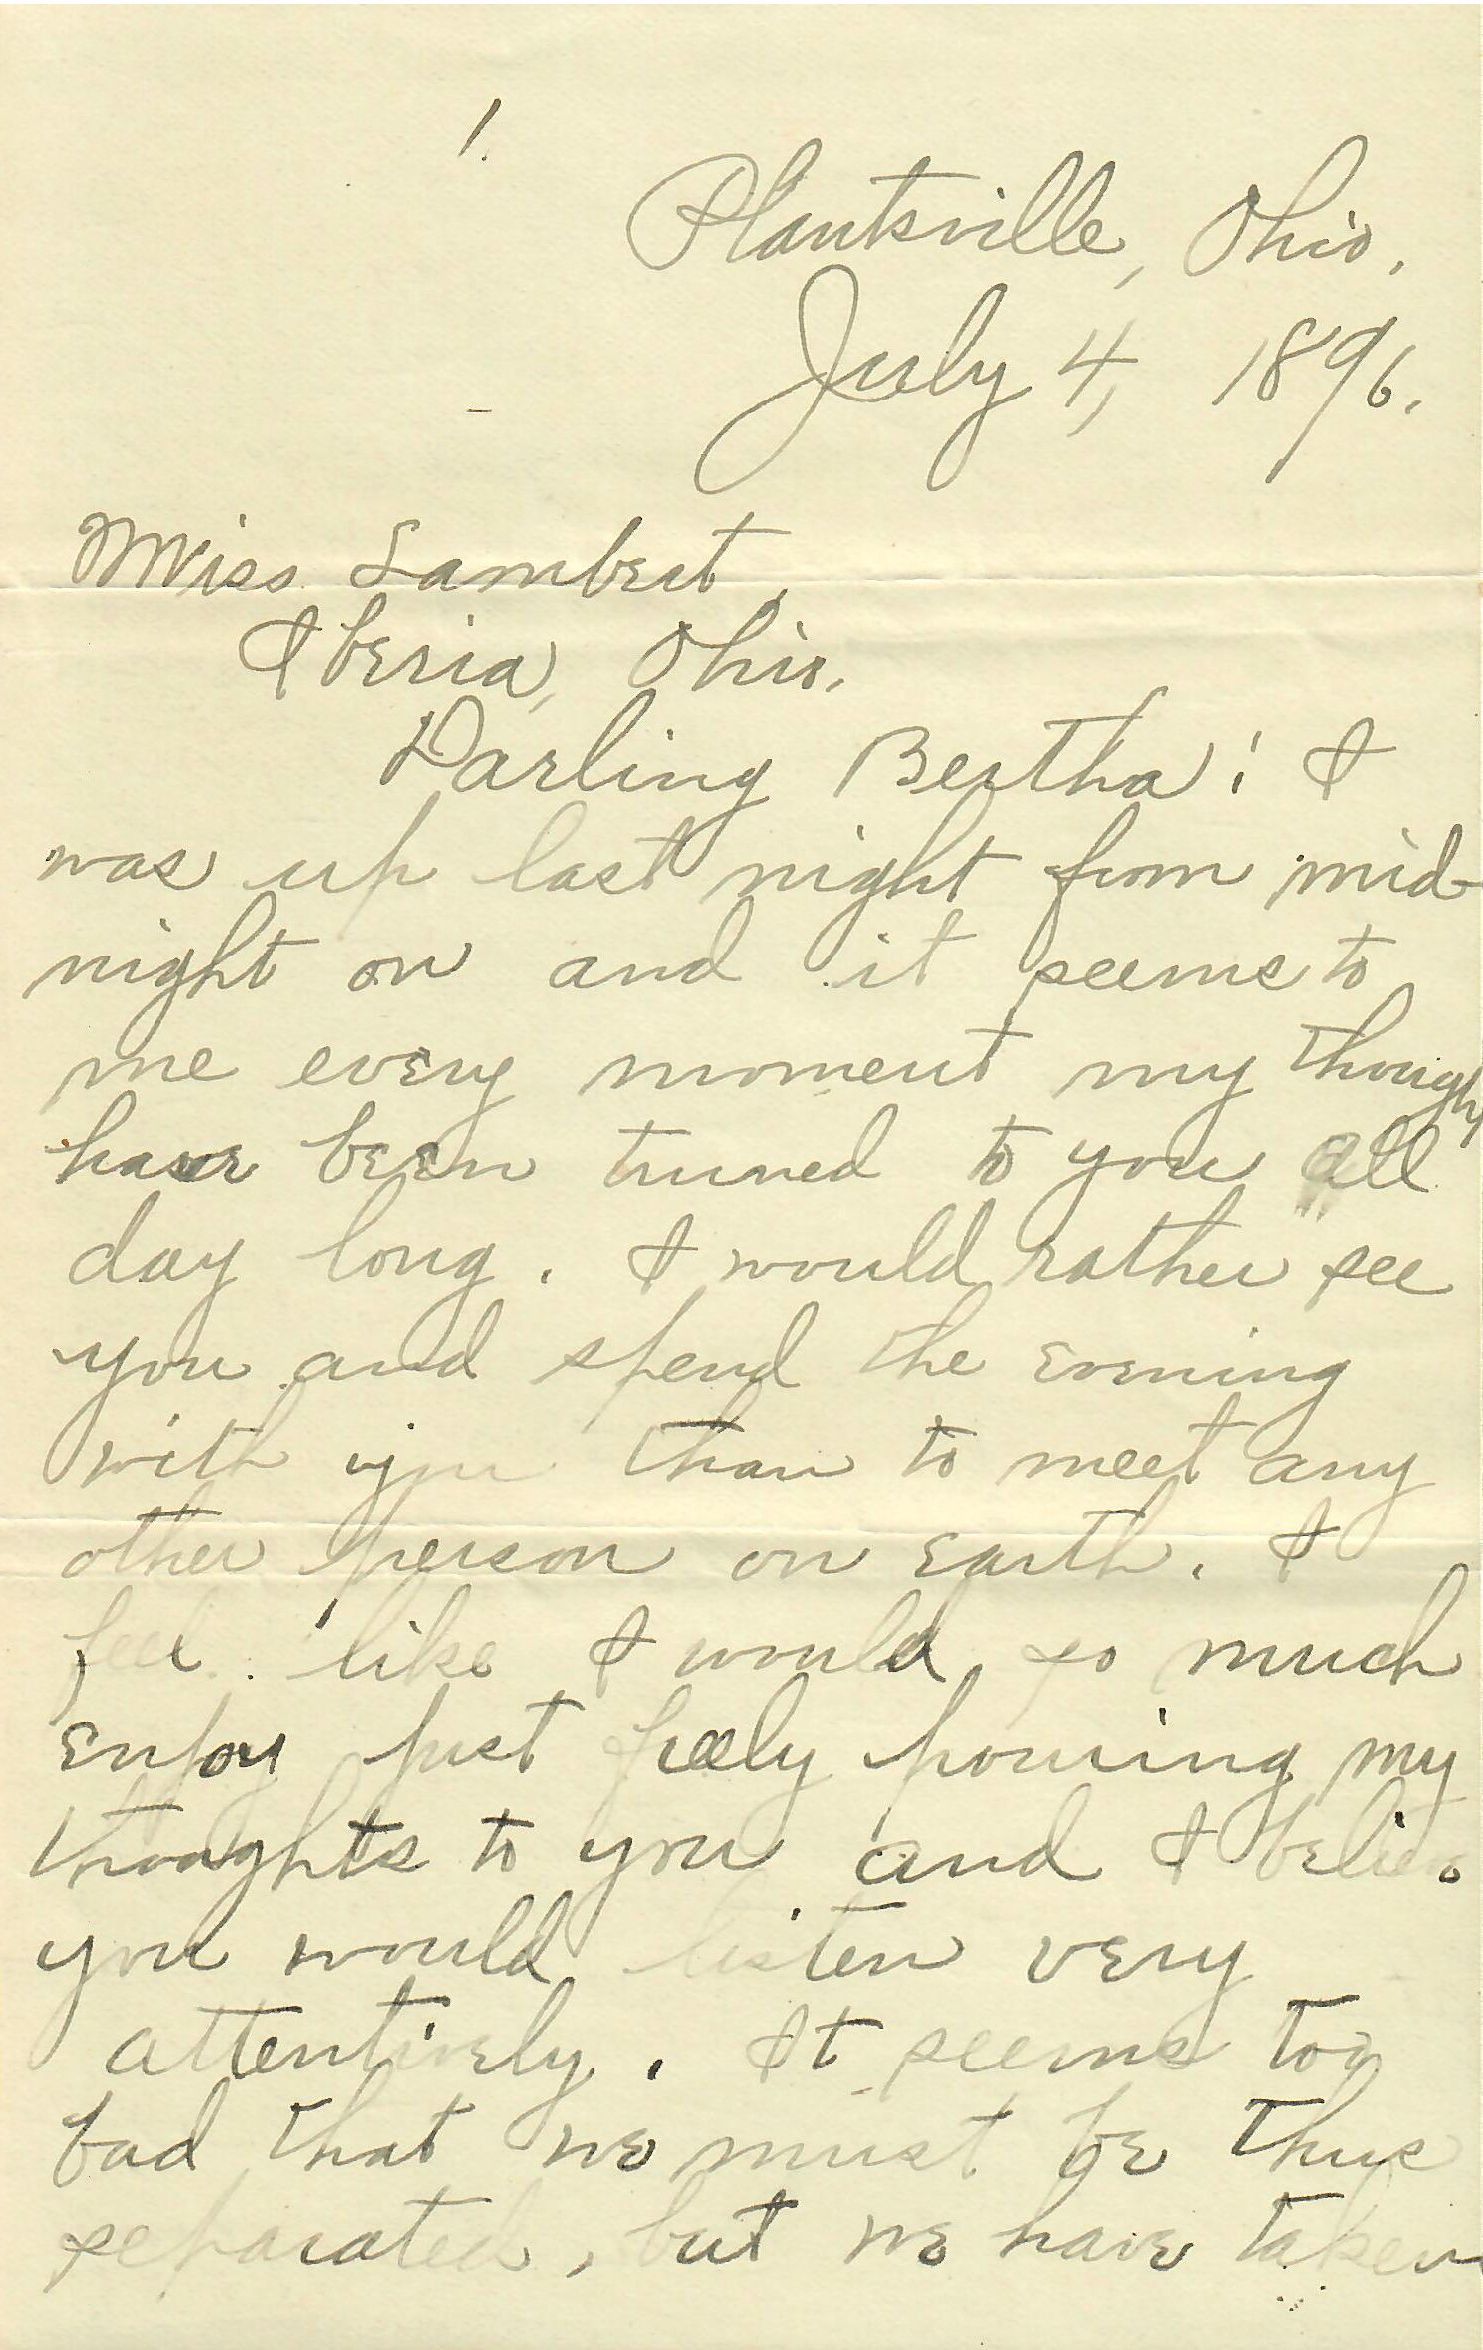 1.
Plantsville, Ohio.
July 4, 1896.
Miss Lambert,
Iberia, Ohio.
Darling Bertha: I
was up last night from mid-
night on and it seems to
me every moment my though
have been turned to you all
day long. I would rather see
you and spend the evening
with you than to meet any
other person on earth. I
feel like I would so much
enjoy just freely pouring my
thoughts to you and I believe
you would listen very
attentively. It seems too
bad that we must be thus
separated, but we have taken